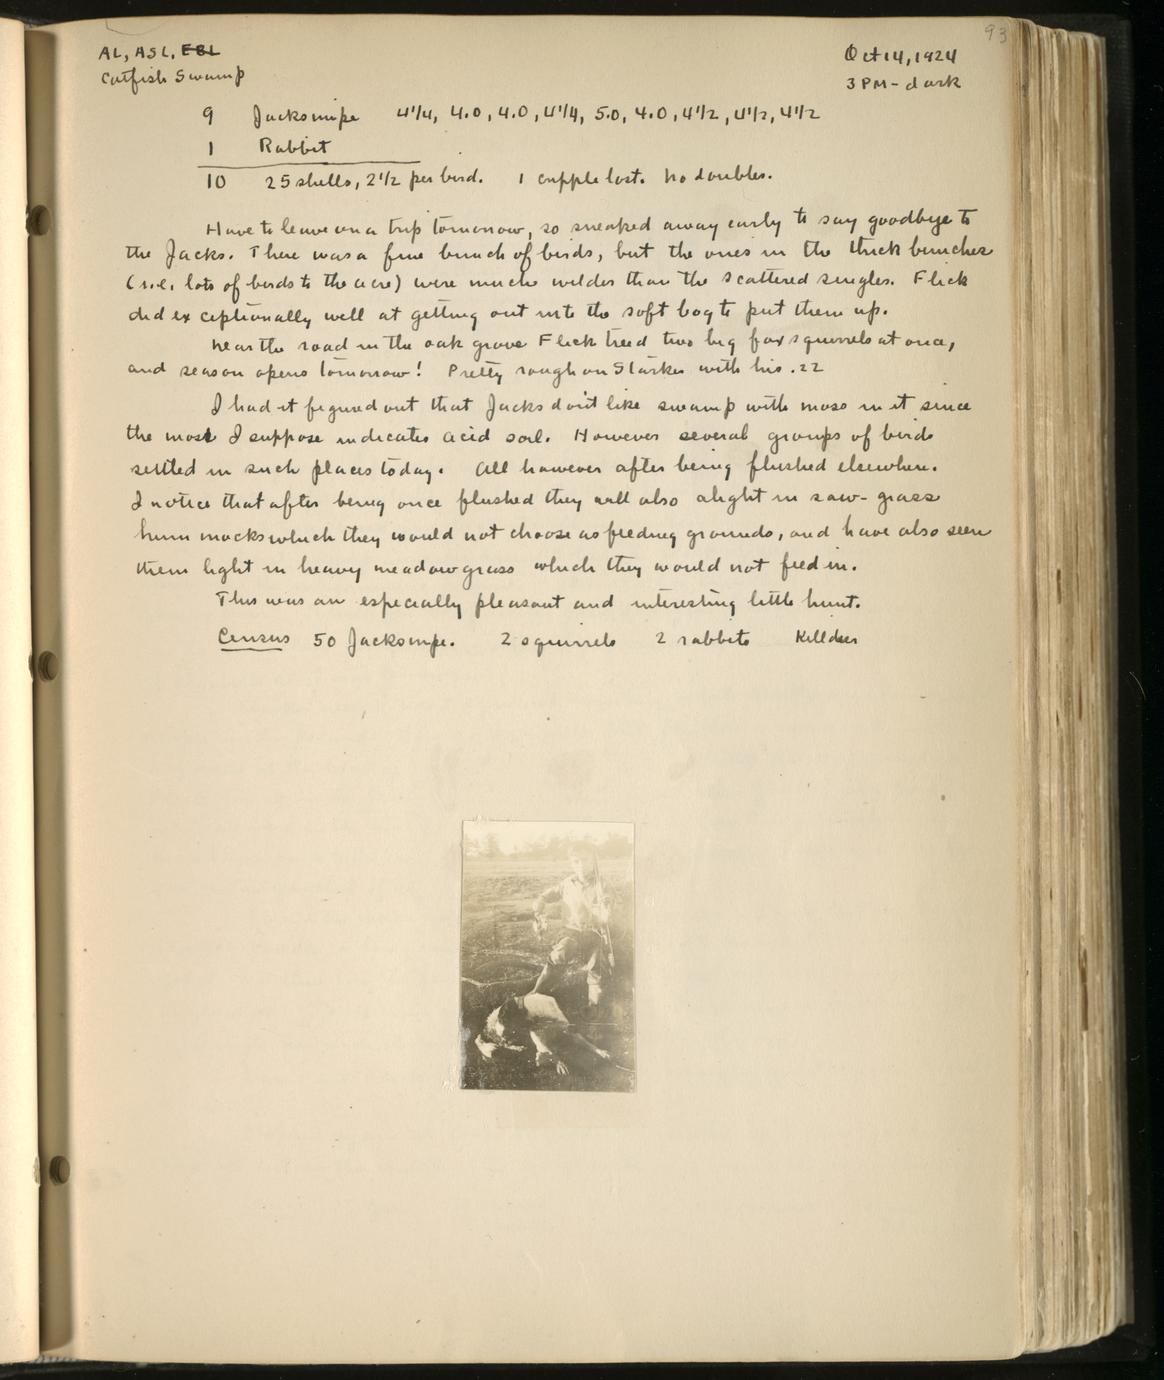 93
AL, ASL, EBL
Oct 14, 1924
Catfish Swamp
3 PM - dark
9 Jacksnipe 4 1/4, 4.0, 4.0, 4 1/4, 5.0, 4.0, 4 1/2, 4 1/2, 4 1/2
1 Rabbit
10 25 shells, 2 1/2 per bird. 1 cripple lost. No doubles.
Have to leave on a trip tomorrow, so sneaked away early to say goodbye to
the Jacks. There was a fine bunch of birds, but the ones in the thick bunches
(i.e. lots of birds to the acre) were much wilder than the scattered singles. Flick
did exceptionally well at getting out into the soft bog to put them up.
Near the road in the oak grove Flick treed two big fox squirrels at once,
and season opens tomorrow! Pretty rough on Starker with his .22
I had it figured out that Jacks don't like swamp with moss in it since
the most I suppose indicates acid soil. However several groups of birds
settled in such places today. All however after being flushed elsewhere.
I notice that after being once flushed they will also alight in saw-grass
hummocks which they would not choose as feeding grounds, and have also seen
them light in heavy meadow grass which they would not feed in.
This was an especially pleasant and interesting little hunt.
Census 50 Jacksnipe. 2 squirrels 2 rabbits Killdeer